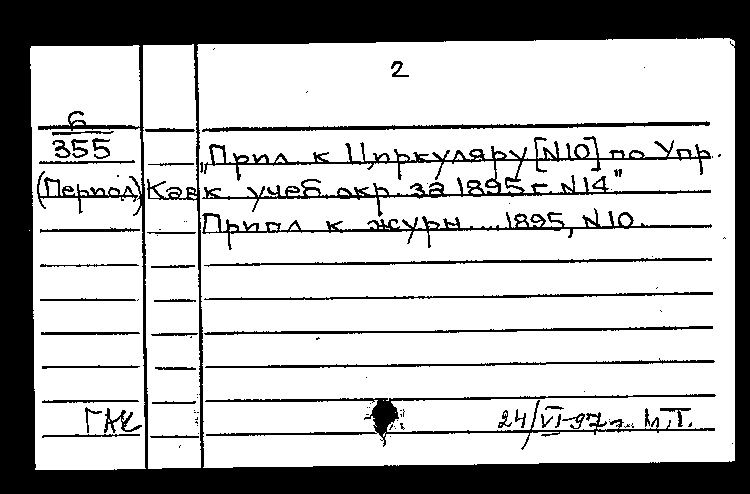 2
Б
355
„Прил. к Циркуляру [N10] по Упр.
(Период) Кавк. учеб. окр. за 1895 г. N14"
Прил. к журн. ... 1895, N10.
ГАК
24/VI-97г. М.Т.